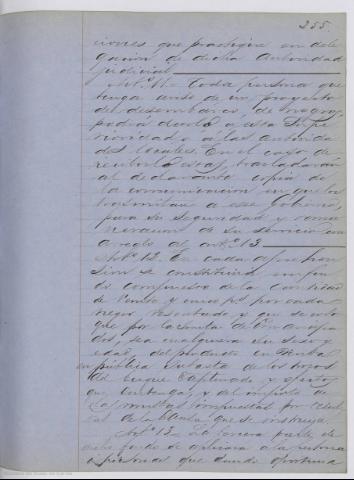 255.
ciones que practiquen en dele
gacion de dicha Autoridad
judicial.
Art. 11. Toda persona que
tenga aviso de un proyecto
de desembarco, de negros,
podrá decirlo a esta Supe
rioridad o á las autorida
des locales. En el caso de
recibirlo estas, trasladarán
al declarante copia de
la comunicacion en que lo
trasmitan a este Gobierno,
para su seguridad y remu
neracion de su servicio con
arreglo al artº 13
Artº 12. En cada aprehen
sion se constituirá un fon
do compuesto de la cantidad
de pesos por cada
negro rescatado y
que por la Junta de Emancipa
dos, sea cualquiera su sexo y
edad, del producto en venta
en pública subasta de los trozos
del buque capturado y efectos
que contenga, y del importe de
las multas impuestas por
de la causa que se instruya.
Artº 13. La tercera parte de
este fondo se aplicará a la persona
ó personas que dando oportuna